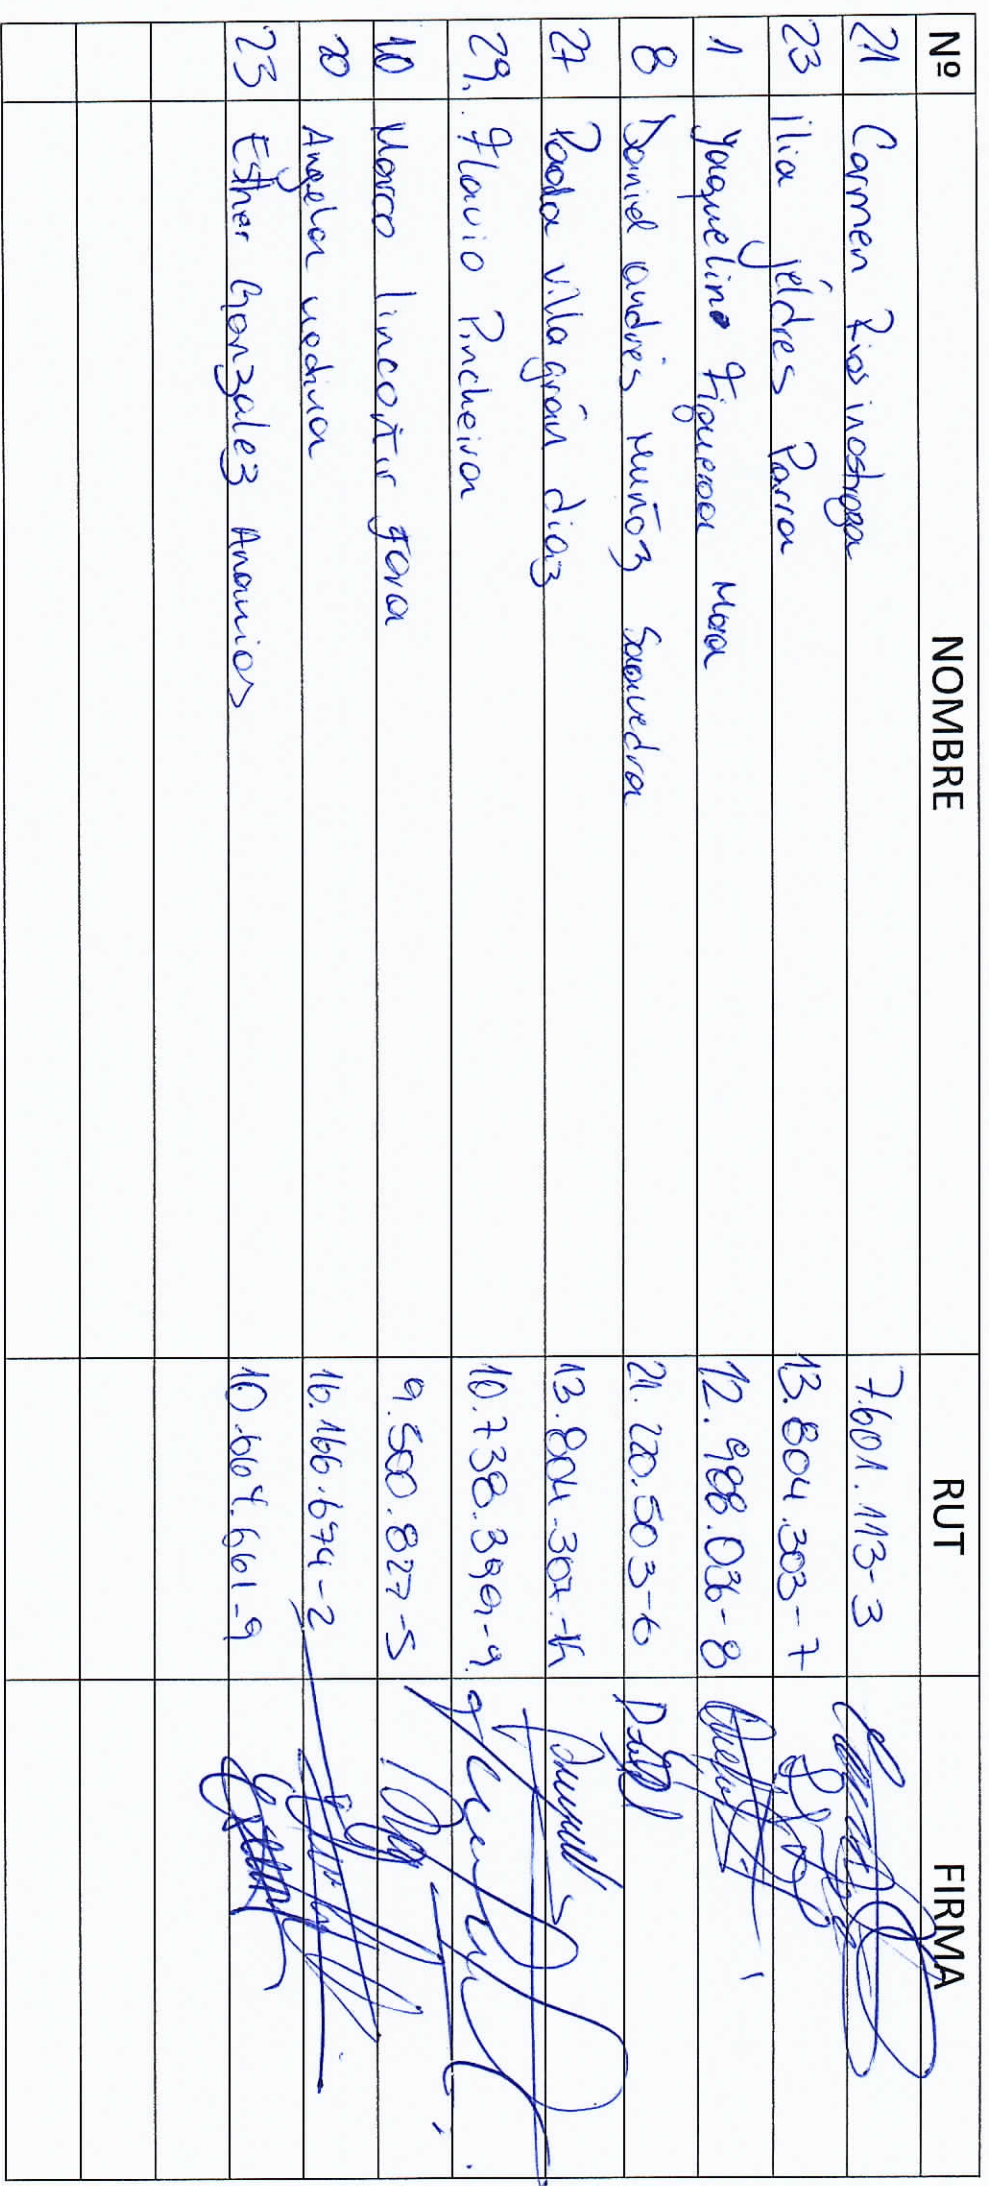 Nº NOMBRE RUT FIRMA
21 Carmen Rios inostroza 7.601.113-3
23 ilia jéldres Parra 13.804.303-7
1 Yaqueline Figueroa Mora 12.988.036-8
8 Daniel andrés Muñoz Saavedra 21.220.503-6
27 Paola villagrán diaz 13.804.307-K
29. Flavio Pincheira 10.738.399-9.
10 Marco lincoñir Jara 9.500.827-5
20 Angela 16.166.674-2
23 Esther Gonzalez 10.664.661-9